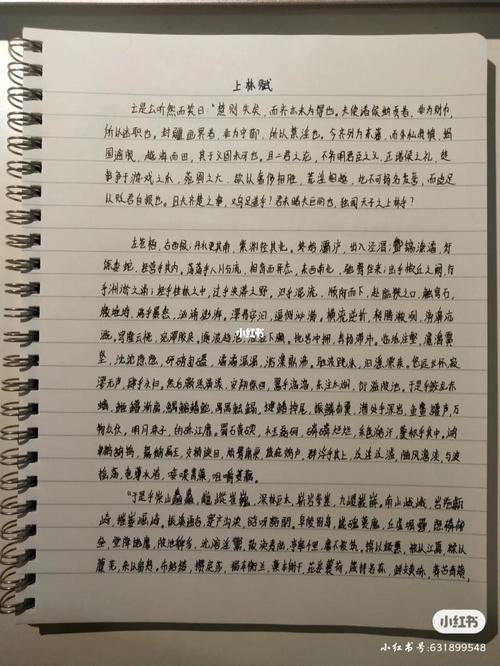 上林赋
亡是公听然而笑曰:"楚则失矣,而齐亦未为得也。夫使诸侯纳贡者,非为财币,
所以述职也。封疆画界者,非为守御,所以禁淫也。今齐列为东藩,而外私肃慎,捐
国逾限,越海而田,其于义固未可也。且二君之论,不务明君臣之义,正诸侯之礼,徒
事争于游戏之乐,苑囿之大,欲以奢侈相胜,荒淫相越,此不可扬名发誉,而适足
以贬君自损也。且夫齐楚之事,又乌足道乎?君未睹夫巨丽也,独闻天子之上林乎?
左苍梧,右西极;丹水更其南,紫渊径其北。终始灞浐,出入泾渭;酆镐潦潏,纡
馀委蛇,经营乎其内。荡荡乎八川分流,相背而异态。东西南北,驰骛往来;出乎椒丘之阙,行
乎洲淤之浦;经乎桂林之中,过乎泱漭之野。汩乎混流,顺阿而下,赴隘狭之口,触穹石,
激堆埼,沸乎暴怒,汹涌澎湃。滭弗宓汩,逼侧泌瀄。横流逆折,转腾潎洌,滂濞沆
溉。穹隆云桡,宛潬胶盭。逾波趋浥,涖涖下濑。批岩冲拥,奔扬滞沛。临坻注壑,瀺灂霣
坠,沈沈隐隐,砰磅訇礚,潏潏淈淈,湁潗鼎沸。驰波跳沫,汩漂疾。悠远长怀,寂
漻无声,肆乎永归。然后灏溔潢漾,安翔徐回,翯乎滈滈,东注太湖,衍溢陂池。于是乎蛟龙赤
螭,渐离,揵鳍掉尾,振鳞奋翼,潜处乎深岩,鱼鳖讙声,万
物众伙。明月珠子,的皪江靡。蜀石黄碝,水玉磊砢,磷磷烂烂,采色澔汗,藂积乎其中。鸿
群浮乎其上,沉淫泛滥,随风澹淡,与波
摇荡,奄薄水渚,唼喋菁藻,咀嚼菱藕。
"于是乎崇山矗矗,巃嵷崔巍,深林巨木,崭岩参差,九嵕嶻嶭。南山峨峨,岩陁甗
锜,摧崣崛崎。振溪通谷,蹇产沟渎,谽呀豁閜,阜陵别岛,
登降施靡,陂池貏豸,沇溶淫鬻,散涣夷陆,亭皋千里,靡不被筑。掩以绿蕙,被以江蓠,糅以
蘼芜,杂以留夷。布结缕,攒戾莎,揭车衡兰,槁本射干,茈姜蘘荷,葴持若荪,鲜支黄砾,蒋苎青薠,
小红书
小红书
小红书号:631899548